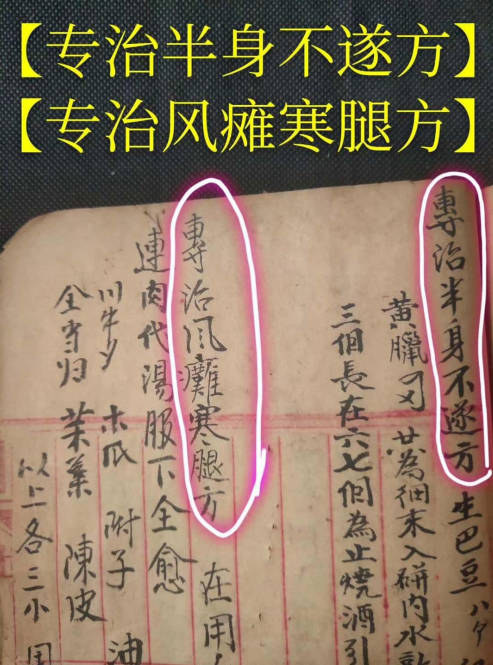 【专治半身不遂方】
【专治风瘫寒腿方】
專治半身不遂方 生巴豆八个
黄臘 為細末入 内水
三個長在六七個為止燒酒引
專治风癱寒腿方 在用
連肉代湯服下全愈
川牛夕 木瓜 附子 油
全当归 陳皮
以上各三小